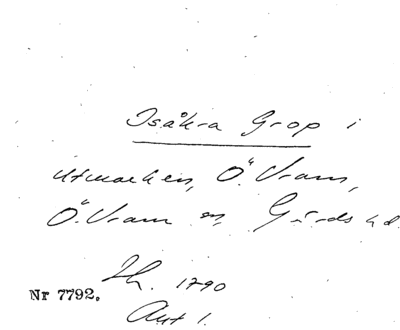 Isåkra Grop i
utmarken, Ö. Vram,
Ö. Vram sn, Gärds hd.
Sk. 1790
Nr 7792.
Akt 1.